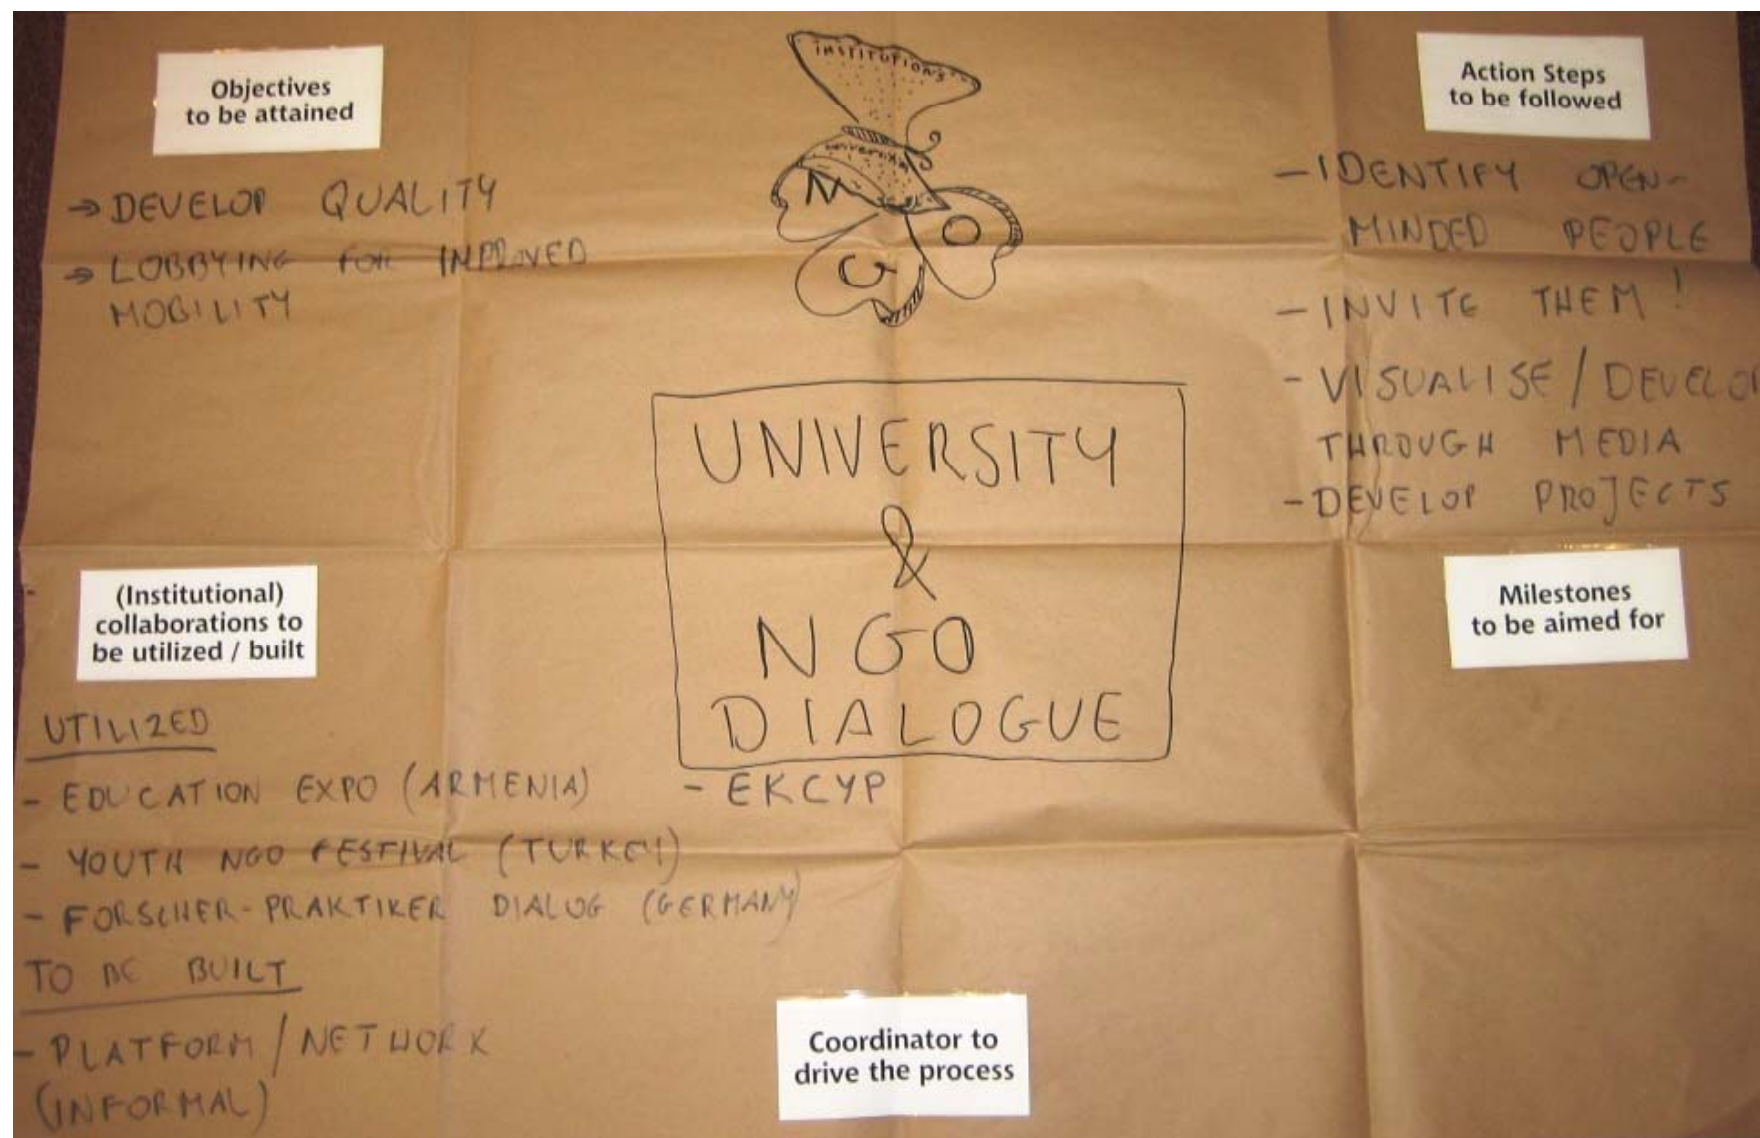 Objectives
to be attained
→ DEVELOP QUALITY
→ LOBBYING FOR IMPROVED
MOBILITY
INSTITUTIONS
UNIVERSITY
N
G
O
Action Steps
to be followed
- IDENTIFY OPEN-
MINDED PEOPLE
- INVITE THEM!
- VISUALISE / DEVELO
THROUGH MEDIA
- DEVELOP PROJECTS
UNIVERSITY
&
NGO
DIALOGUE
(Institutional)
collaborations to
be utilized / built
UTILIZED
- EDUCATION EXPO (ARMENIA)
- YOUTH NGO FESTIVAL (TURKEY)
- FORSCHER-PRAKTIKER DIALOG (GERMANY)
- EKCYP
TO BE BUILT
- PLATFORM / NETWORK
(INFORMAL)
Milestones
to be aimed for
Coordinator to
drive the process